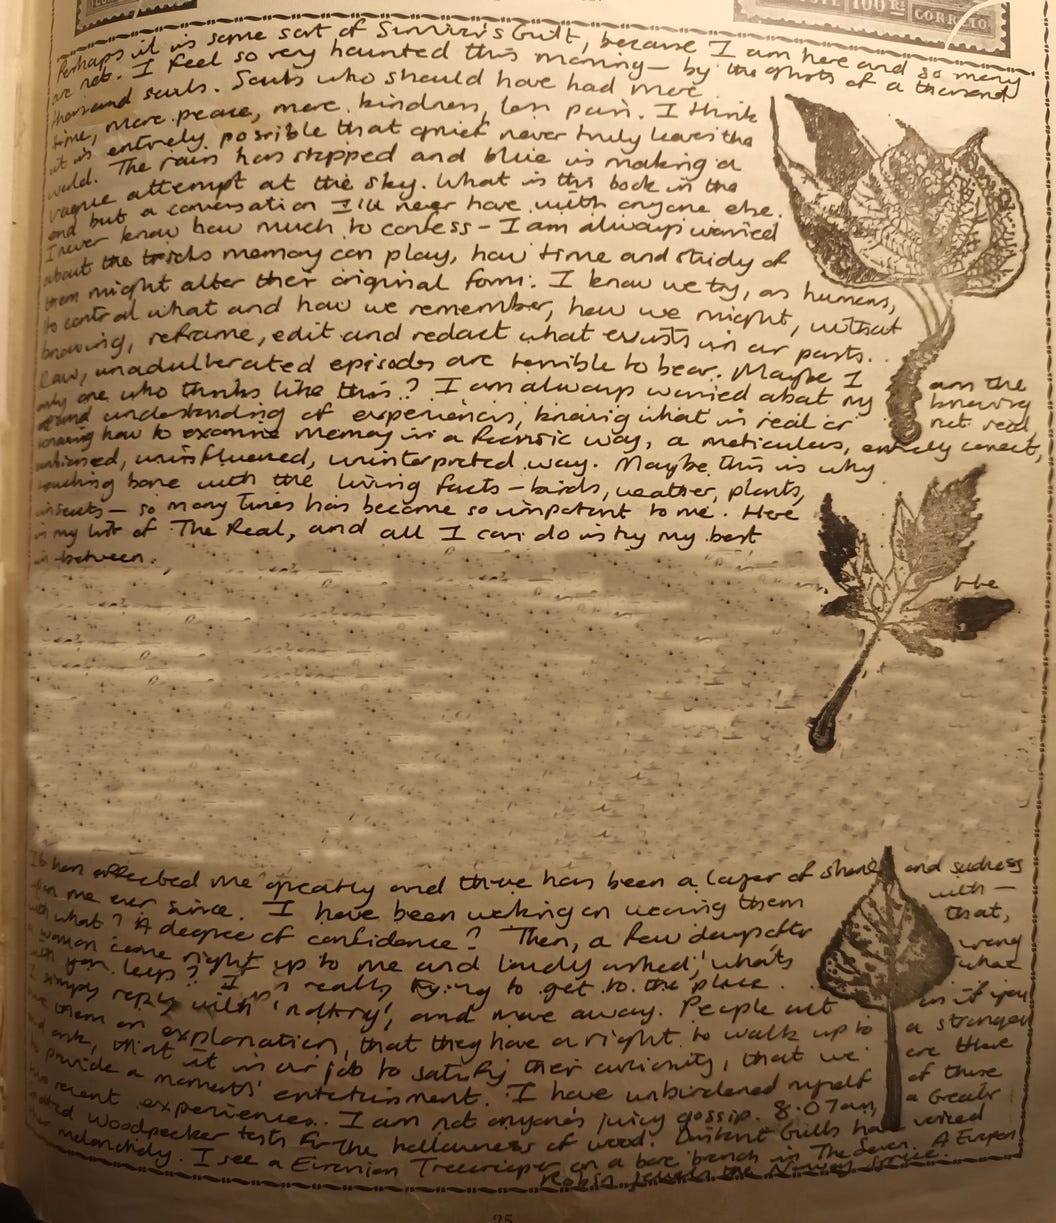 100 Rs CORREIO.
Perhaps it is some sort of Survivor's Guilt, because I am here and so many
are not. I feel so very haunted this morning – by the ghosts of a thousand
thousand souls. Souls who should have had more
time, more peace, more kindness, less pain. I think
it is entirely possible that grief never truly leaves the
world. The rain has stopped and blue is making a
vague attempt at the sky. What is this book in the
end but a conversation I'll never have with anyone else.
I never know how much to confess – I am always worried
about the tricks memory can play, how time and study of
them might alter their original form. I know we try, as humans,
to control what and how we remember, how we might, without
knowing, reframe, edit and redact what exists in our pasts.
Raw, unadulterated episodes are terrible to bear. Maybe I am the
only one who thinks like this? I am always worried about my knowing
and understanding of experiences, knowing what is real or not real,
knowing how to examine memory in a forensic way, a meticulous, entirely correct,
unbiased, uninfluenced, uninterpreted way. Maybe this is why
touching base with the living facts – birds, weather, plants,
insects – so many times has become so important to me. Here
is my list of The Real, and all I can do is try my best
in between.
It has affected me greatly and there has been a layer of shame and sadness
upon me ever since. I have been working on wearing them with –
with what? A degree of confidence? Then, a few days after that,
a woman came right up to me and loudly asked, 'what's wrong
with your legs?' I was really trying to get to the place where
I simply reply with 'nothing', and move away. People act as if you
owe them an explanation, that they have a right to walk up to a stranger
and ask, that it is our job to satisfy their curiosity, that we are there
to provide a moment's entertainment. I have unburdened myself of those
two recent experiences. I am not anyone's juicy gossip. 8.07am, a Greater
Spotted Woodpecker tests for the hollowness of wood. Distant Gulls have voiced
their melancholy. I see a Eurasian Treecreeper on a bare branch in The Seven. A European
Robin jewels the Norway Spruce.
25